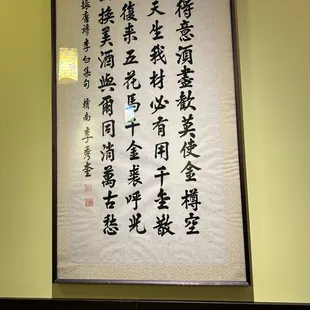 得意須盡歡莫使金樽空
天生我材必有用千金散
復来五花馬千金裘呼兒
換美酒與爾同消萬古愁
詩李白集句 南李